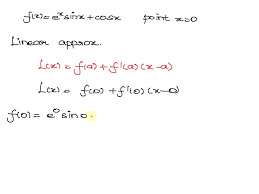 f(x) = eˣ sinx + cosx point x=0
Linear approx.
L(x) = f(a) + f'(a) (x-a)
L(x) = f(0) + f'(0) (x-0)
f(0) = e⁰ sin0.